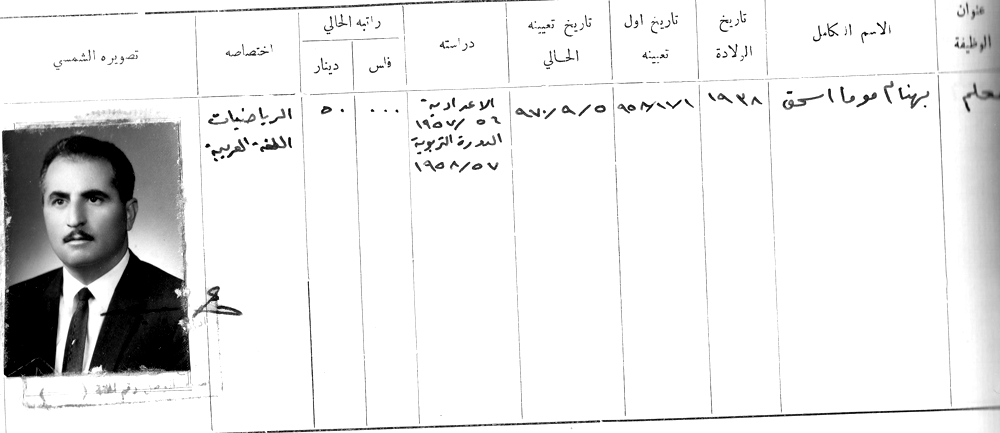 عنوان
الوظيفة
الاسم الكامل
تاريخ
الولادة
تاريخ اول
تعيينه
تاريخ تعيينه
الحالي
دراسته
راتبه الحالي
فلس
دينار
اختصاصه
تصويره الشمسي
معلم
بهنام موما اسحق
١٩٣٨
٩٥٨/١٢/١
٩٧٠/٩/٥
الاعدادية
١٩٥٧/٥٦
الدورة التربوية
١٩٥٨/٥٧
٠٠٠
٥٠
الرياضيات
اللغة العربية